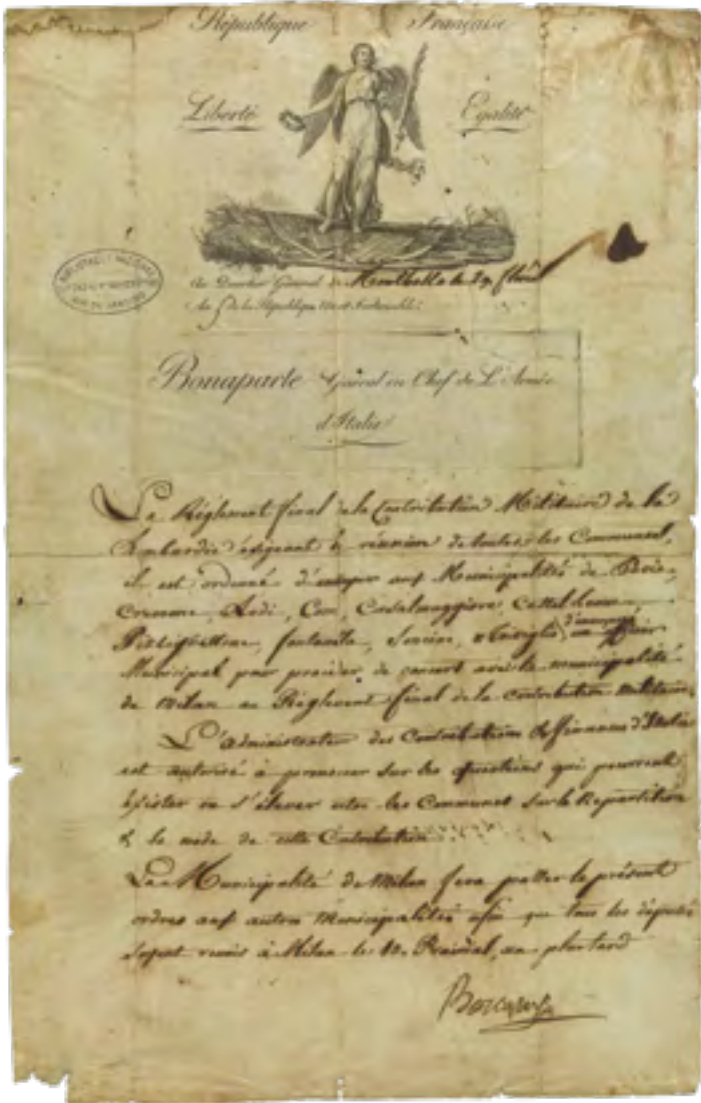 République Française
Liberté Egalité
BIBLIOTHECA NACIONAL
RIO DE JANEIRO
Au Quartier Général de Montbello le 29 floréal
An 5 de la République Une et Indivisible
Bonaparte Général en Chef de L'Armée
d'Italie
Le Réglement final de la Contribution Militaire de la
Lombardie éxigeant la réunion de toutes les Communes,
il est ordonné aux Municipalités de Pavie,
Cremone, Lodi, Com, Casalmaggiore,
Pizzighettone, fontanella, Soncino, d'envoyer un
Municipal pour procéder de concert avec la municipalité
de Milan au Réglement final de la contribution militaire.
L'administrateur des Contributions & finances d'Italie
est autorisé à prononcer sur les questions qui pourront
éxister ou s'élever entre les Communes sur la Repartition
& le mode de cette Contribution.
La Municipalité de Milan fera passer le présent
ordres aux autres Municipalités afin que tous les députés
soyent reunis à Milan le 10. Prairial, au plus tard
Bonaparte